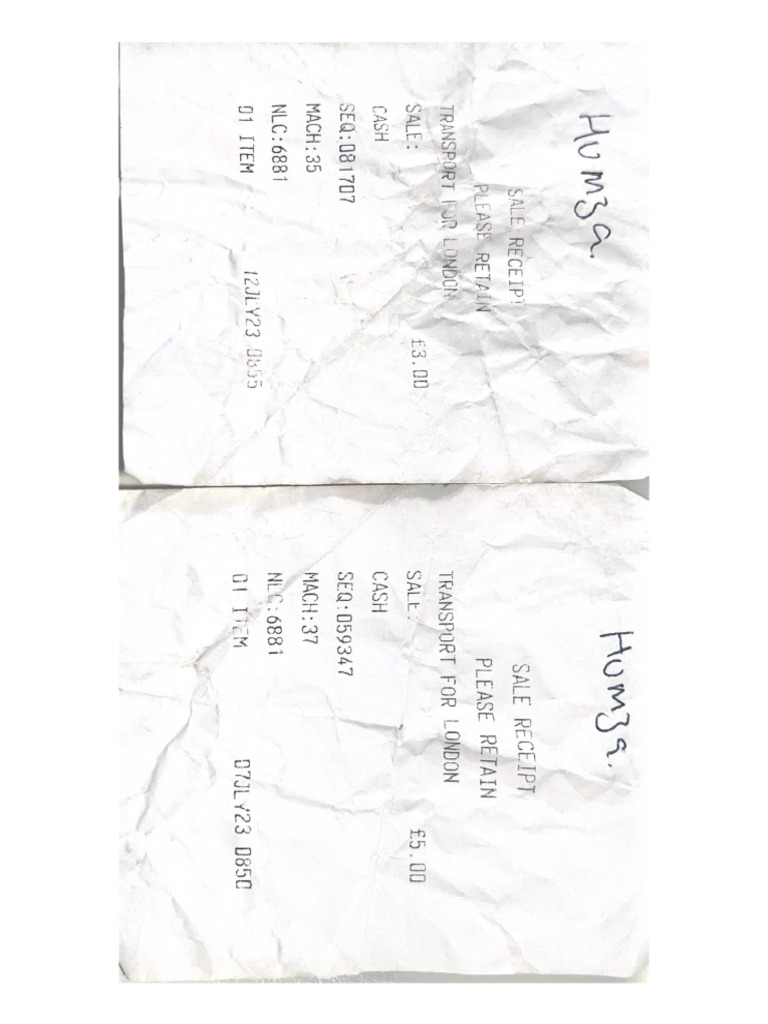 Humza.
SALE RECEIPT
PLEASE RETAIN
TRANSPORT FOR LONDON
SALE: £3.00
CASH
SEQ:081707
MACH:35
NLC:6881
01 ITEM 12JLY23 0855
Humza.
SALE RECEIPT
PLEASE RETAIN
TRANSPORT FOR LONDON
SALE: £5.00
CASH
SEQ:059347
MACH:37
NLC:6881
01 ITEM 07JLY23 0850